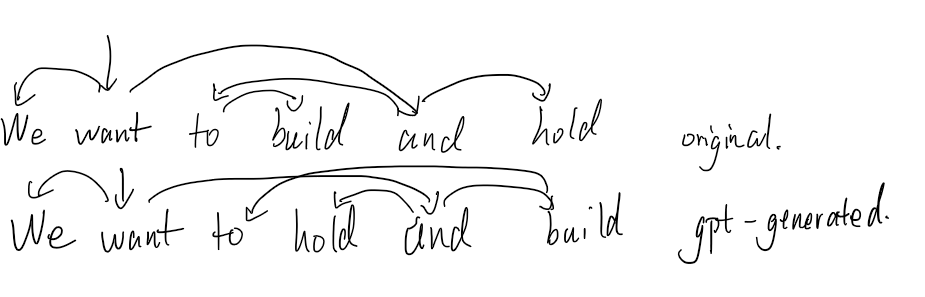 We want to build and hold original.
We want to hold and build gpt-generated.